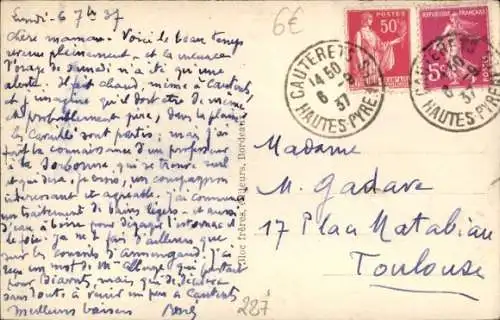 Lundi - 6 7bre 37
Chère maman - Voici le beau temps
revenu pleinement, et la menace
d'orage de samedi n'a été qu'une
alerte. Il fait chaud, même à Cauterets,
et j'imagine qu'il doit être de même
et probablement pire, dans la plaine.
Les sont partis ; mais j'ai
fait la connaissance d'un professeur
à la Sorbonne, qui se trouve seul
et qui sera, je crois, un compagnon
intéressant et agréable. J'ai commencé
un traitement de bains légers - et aussi
d'eau à boire pour dégager l'estomac et
le foie. Je ne fais d'ailleurs que
sur les conseils d' J'ai
reçu un mot de Mr qui partait
pour Biarritz, mais qui se décidera
sans doute à venir un peu à Cauterets
Meilleurs baisers
6€
POSTES
50c
RÉPUBLIQUE FRANÇAISE
5c
POSTES
CAUTERETS
14 50
6 -9
37
HAUTES-PYRÉNÉES
CAUTERETS
6
37
HAUTES-PYR
frères, Bordeaux
Madame
M. Gadave
17 Place Matabiau
Toulouse
227